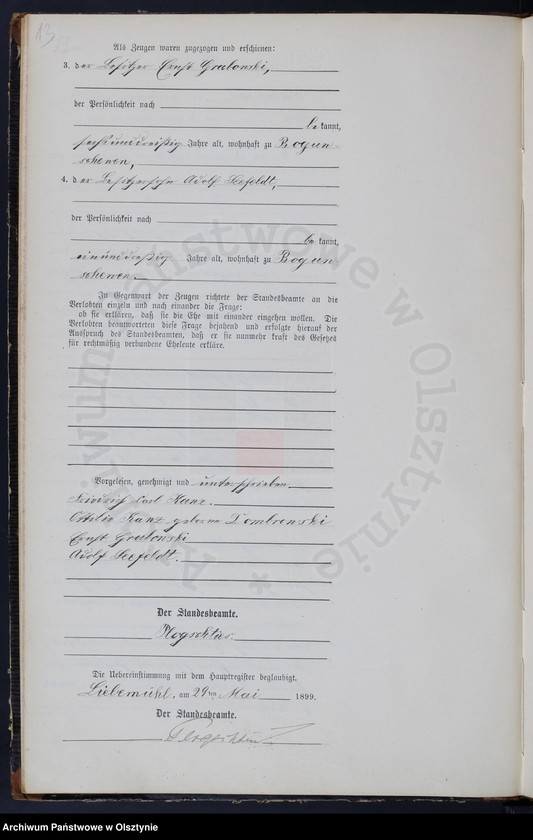 13
Als Zeugen waren zugezogen und erschienen:
3. der Besitzer Ernst Grabowski,
der Persönlichkeit nach
be kannt,
sechsunddreißig Jahre alt, wohnhaft zu Bogun-
schewen,
4. der Besitzersohn Adolf Seefeldt,
der Persönlichkeit nach
be kannt,
einunddreißig Jahre alt, wohnhaft zu Bogun-
schewen.
In Gegenwart der Zeugen richtete der Standesbeamte an die
Verlobten einzeln und nach einander die Frage:
ob sie erklären, daß sie die Ehe mit einander eingehen wollen. Die
Verlobten beantworteten diese Frage bejahend und erfolgte hierauf der
Ausspruch des Standesbeamten, daß er sie nunmehr kraft des Gesetzes
für rechtmäßig verbundene Eheleute erkläre.
Vorgelesen, genehmigt und unterschrieben.
Friedrich Carl Kunz.
Ottilie Kunz geborene Dombrowski
Ernst Grabowski
Adolf Seefeldt.
Der Standesbeamte.
Die Uebereinstimmung mit dem Hauptregister beglaubigt.
Liebemühl, am 29ten Mai 1899.
Der Standesbeamte.
Archiwum Państwowe w Olsztynie
Archiwum Państwowe w Olsztynie